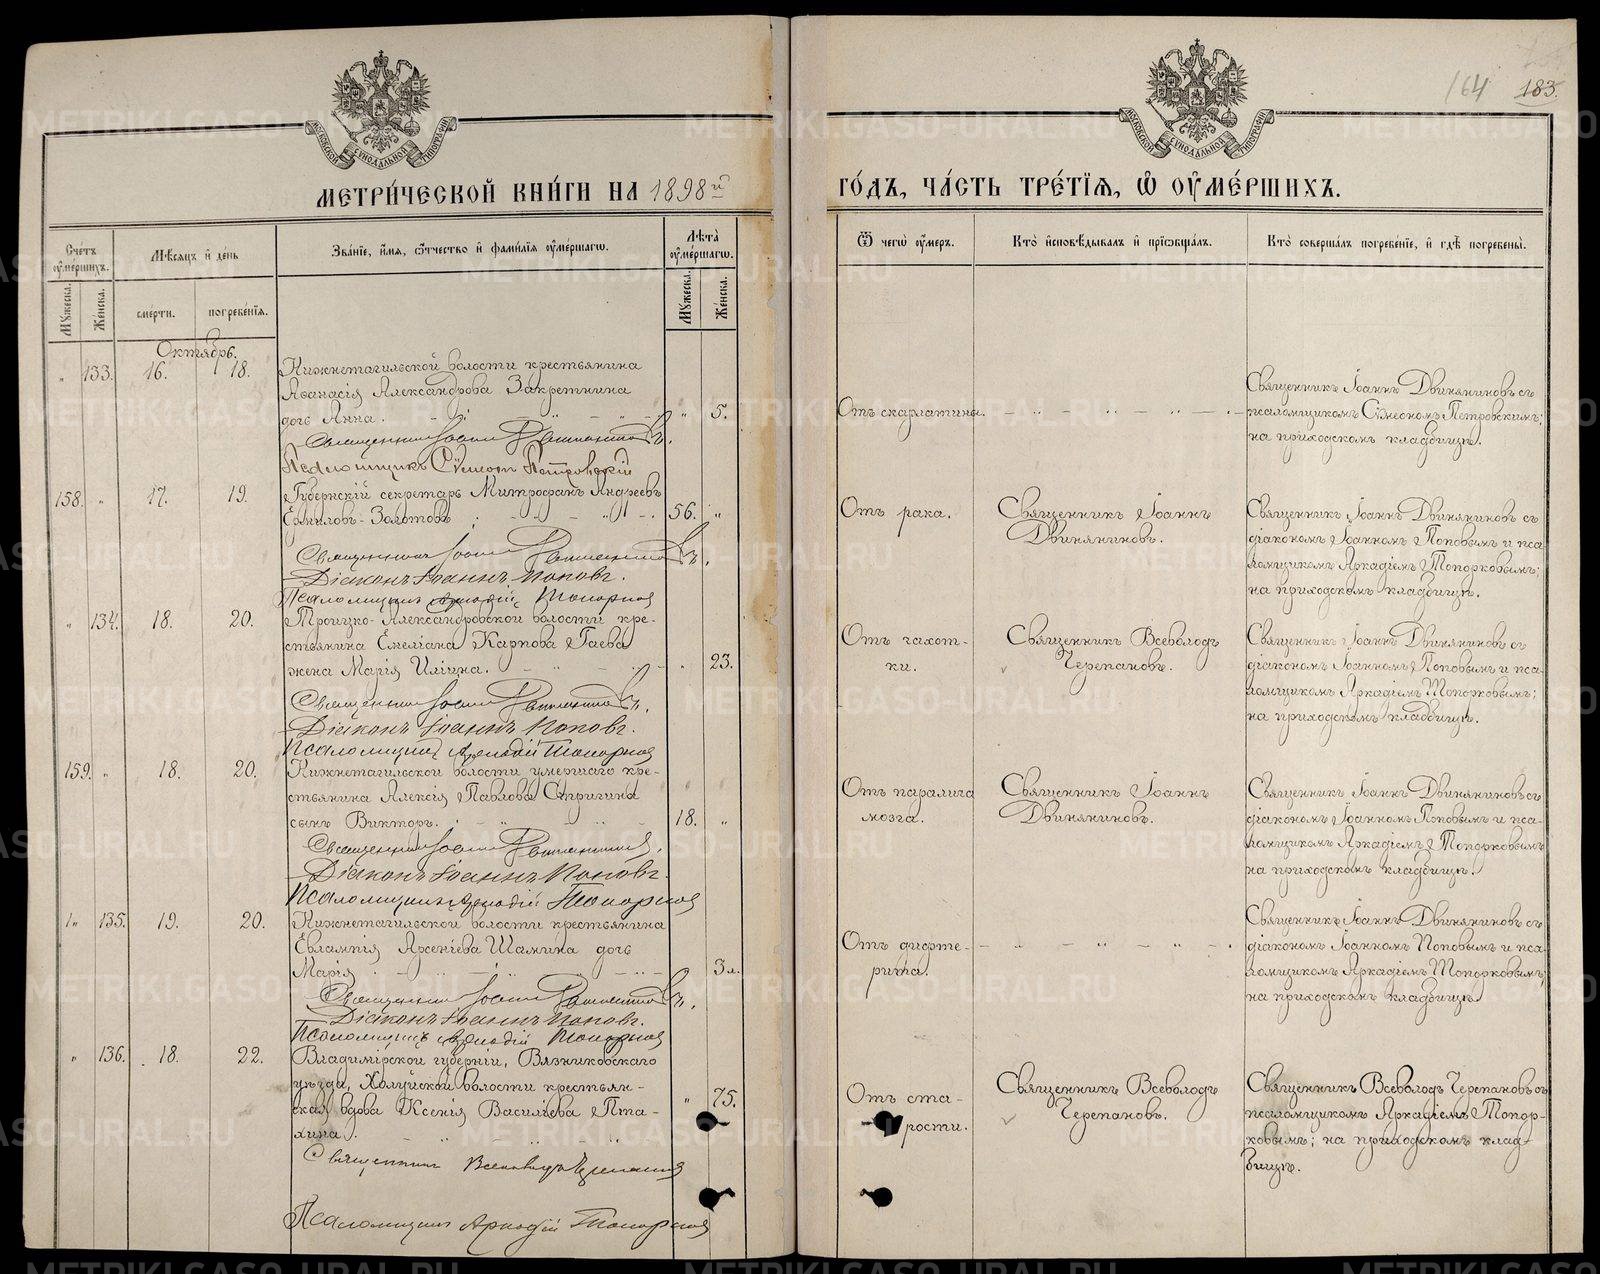 164 183.
МОСКОВСКОЙ СѴНОДАЛЬНОЙ ТИПОГРАФІИ
МОСКОВСКОЙ СѴНОДАЛЬНОЙ ТИПОГРАФІИ
МЕТРИ́ЧЕСКОЙ КНИ́ГИ НА 1898й
ГО́ДЪ, ЧА́СТЬ ТРЕ́ТІѦ, Ѡ ОУМЕ́РШИХЪ.
Сче́тъ оумершихъ.
Мѣсяцъ и де́нь
Зва́ніе, и́мя, ѻ́тчество и фами́лія оуме́ршагѡ.
Лѣта̀ оуме́ршагѡ.
Ѿ чегѡ̀ оу́меръ.
Кто̀ исповѣ́дывалъ и пріѡбща́лъ.
Кто̀ соверша́лъ погребе́ніе, и гдѣ̀ погребены̀.
Мꙋжеска. Же́нска. сме́рти. погребе́нія. Мꙋжеска. Же́нска.
Октябрь.
" 133. 16. 18.
Нижнетагильской волости крестьянина
Аѳанасія Александрова Закретнина
дочь Анна. " 5.
Священникъ Іоаннъ Двиняниновъ.
Псаломщикъ Сѵмеонъ Петровскій
Отъ скарлатины.
Священникъ Іоаннъ Двиняниновъ съ
псаломщикомъ Сѵмеономъ Петровскимъ;
на приходскомъ кладбищѣ.
158. " 17. 19.
Губернскій секретарь Митрофанъ Андреевъ
Ермиловъ-Золотовъ 56. "
Священникъ Іоаннъ Двиняниновъ.
Діаконъ Іоаннъ Поповъ.
Псаломщикъ Аркадій Топорков
Отъ рака.
Священникъ Іоаннъ
Двиняниновъ.
Священникъ Іоаннъ Двиняниновъ съ
діакономъ Іоанномъ Поповымъ и пса-
ломщикомъ Аркадіемъ Топорковымъ;
на приходскомъ кладбищѣ.
" 134. 18. 20.
Троицко-Александровской волости кре-
стьянина Емеліана Карпова Гаева
жена Марія Иліина. " 23.
Священникъ Іоаннъ Двиняниновъ.
Діаконъ Іоаннъ Поповъ.
Псаломщикъ Аркадій Топорков
Отъ чахот-
ки.
Священникъ Всеволодъ
Черепановъ.
Священникъ Іоаннъ Двиняниновъ съ
діакономъ Іоанномъ Поповымъ и пса-
ломщикомъ Аркадіемъ Топорковымъ;
на приходскомъ кладбищѣ.
159. " 18. 20.
Нижнетагильской волости умершаго кре-
стьянина Алексія Павлова Стригина
сынъ Викторъ. 18. "
Священникъ Іоаннъ Двиняниновъ.
Діаконъ Іоаннъ Поповъ.
Псаломщикъ Аркадій Топорков
Отъ паралича
мозга.
Священникъ Іоаннъ
Двиняниновъ.
Священникъ Іоаннъ Двиняниновъ съ
діакономъ Іоанномъ Поповымъ и пса-
ломщикомъ Аркадіемъ Топорковымъ
на приходскомъ кладбищѣ.
" 135. 19. 20.
Нижнетагильской волости крестьянина
Евлампія Арсеніева Шамина дочь
Марія 3 л.
Священникъ Іоаннъ Двиняниновъ.
Діаконъ Іоаннъ Поповъ.
Псаломщикъ Аркадій Топорков
Отъ дифте-
рита.
Священникъ Іоаннъ Двиняниновъ съ
діакономъ Іоанномъ Поповымъ и пса-
ломщикомъ Аркадіемъ Топорковымъ;
на приходскомъ кладбищѣ.
" 136. 18. 22.
Владимірской губерніи, Вязниковскаго
уѣзда, Холуйской волости крестьян-
ская вдова Ксенія Василіева Пта-
хина. " 75.
Священникъ Всеволодъ Черепановъ
Псаломщикъ Аркадій Топорков
Отъ ста-
рости.
Священникъ Всеволодъ
Черепановъ.
Священникъ Всеволодъ Черепановъ съ
псаломщикомъ Аркадіемъ Топор-
ковымъ; на приходскомъ клад-
бищѣ.
METRIKI.GASO-URAL.RU